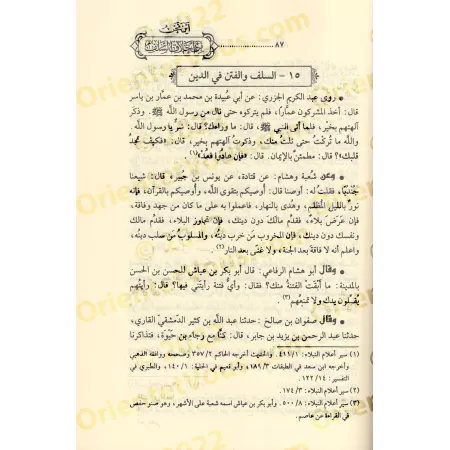 أين نحن من أخلاق السلف
٨٧
١٥ - السلف والفتن في الدين
• روى عبد الكريم الجزري: عن أبي عبيدة بن محمد بن عمّار بن ياسر
قال: أخذ المشركون عمّاراً، فلم يتركوه حتى نال من رسول الله ﷺ. وذكر
آلهتهم بخير، فلما أتى النبي ﷺ، قال: ما وراءك؟ قال: شرٌّ يا رسول الله.
والله ما تُركت حتى نلتُ منك، وذكرت آلهتهم بخير، قال: «فكيف تجد
قلبك»؟ قال: مطمئنٌ بالإيمان. قال: «فإن عادوا فعُد»(١).
• وعن شعبة وهشام: عن قتادة، عن يونس بن جبير، قال: شيعنا
جُندباً، فقلت له: أوصنا قال: أوصيكم بتقوى الله، وأوصيكم بالقرآن، فإنه
نورٌ بالليل المظلم، وهدى بالنهار، فاعملوا به على ما كان من جهد وفاقة،
فإن عرَضَ بلاء، فقدّم مالك دون دينك، فإن تجاوز البلاء، فقدّم مالك
ونفسك دون دينك، فإن المخروب من خرب دينُه، والمسلوبَ من سلب دينه،
واعلم أنه لا فاقة بعد الجنة، ولا غنى بعد النار(٢).
• وقال أبو هشام الرفاعي: قال أبو بكر بن عياش للحسن بن الحسن
بالمدينة: ما أبقت الفتنة منك؟ فقال: وأي فتنة رأيتني فيها؟ قال: رأيتهم
يُقبلون يدك ولا تمنعهم(٣).
• وقال صفوان بن صالح: حدثنا عبد الله بن كثير الدمشقي القاري،
حدثنا عبد الرحمن بن يزيد بن جابر، قال: كنَّا مع رجاء بن حَيْوَة، فتذاكرنا
(١) سير أعلام النبلاء: ٤١١/١. والحديث أخرجه الحاكم ٣٥٧/٢ وصححه ووافقه الذهبي
وأخرجه ابن سعد في الطبقات ١٨٩/٣، وأبو نعيم في الحلية: ١٤٠/١، والطبري في
التفسير: ١٢٢/١٤.
(٢) سير أعلام النبلاء: ١٧٤/٣.
(٣) سير أعلام النبلاء: ٥٠٠/٨. وأبو بكر بن عياش اسمه شعبة على الأشهر، وهو صنو حفص
في القراءة عن عاصم.